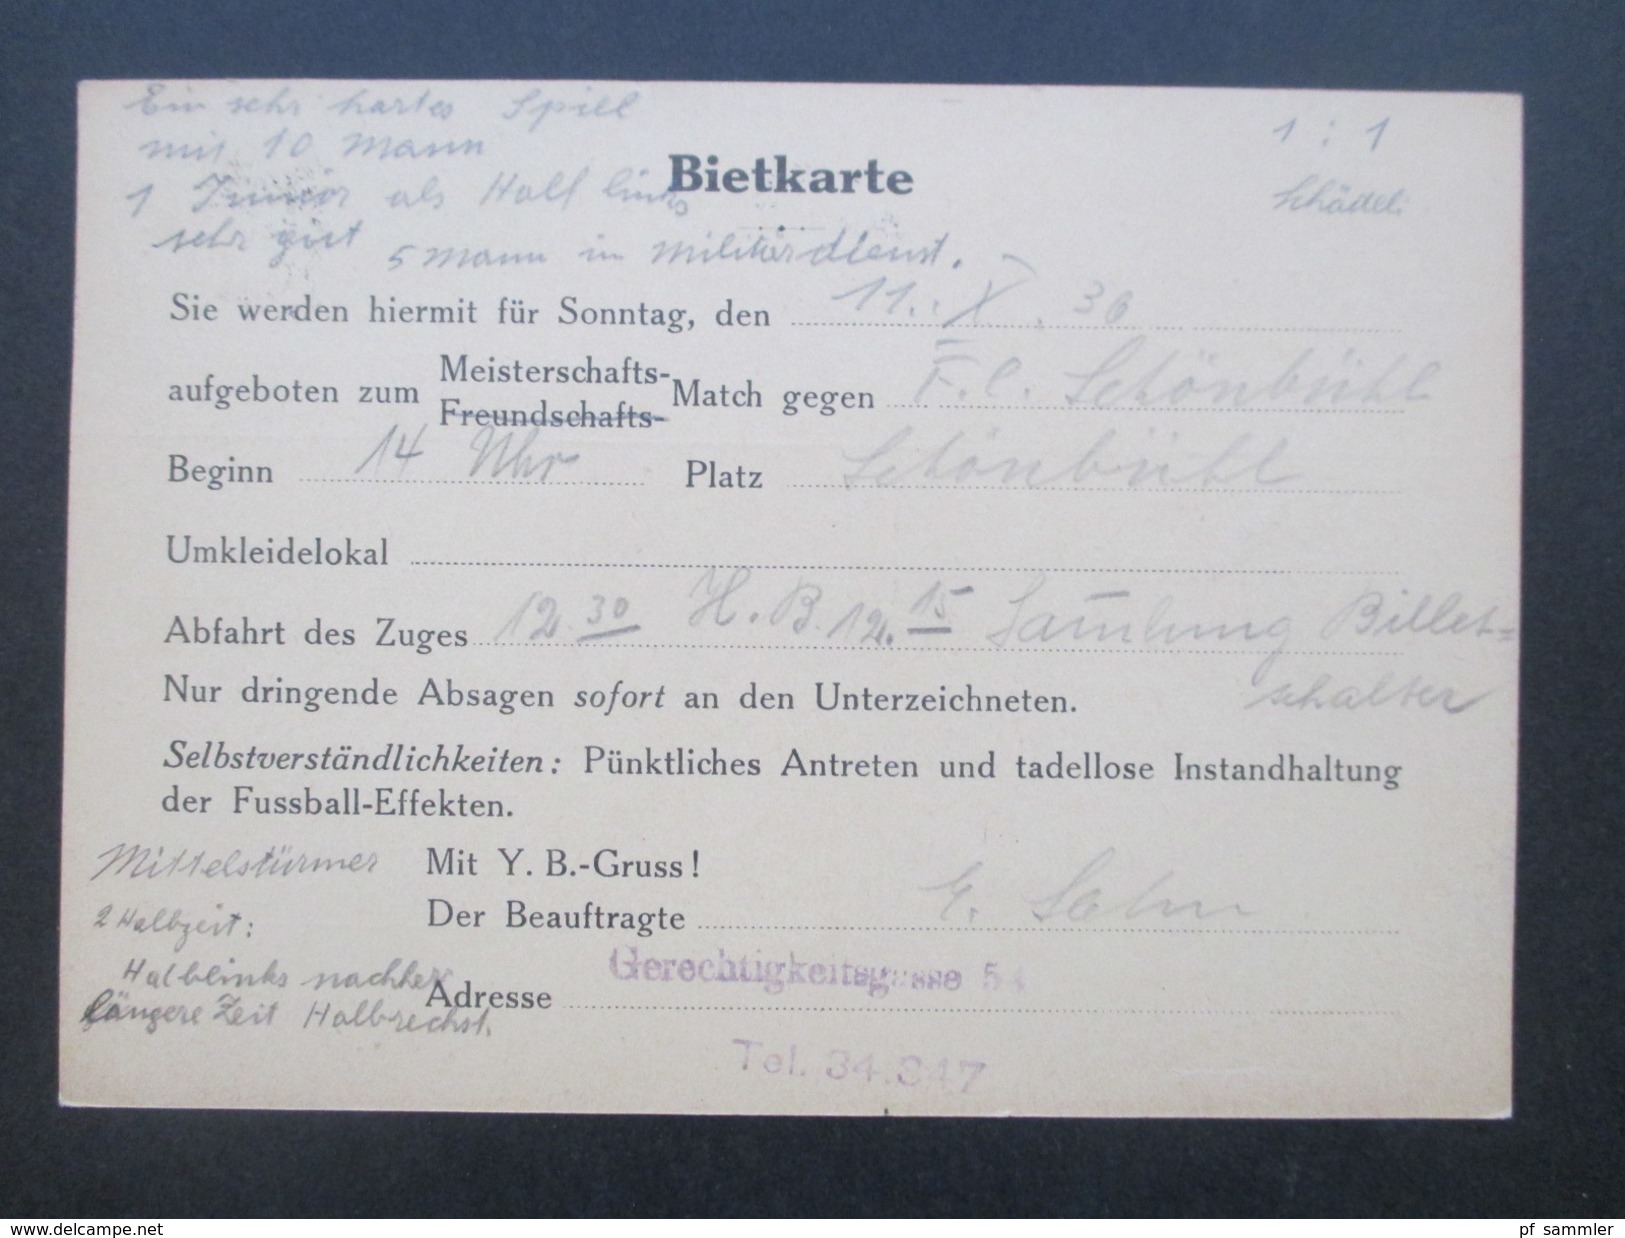 Ein sehr hartes Spiel
mit 10 Mann
1 Junior als Half links
sehr gut 5 Mann in Militärdienst.
1 : 1
Schädel:
Bietkarte
Sie werden hiermit für Sonntag, den 11. X. 36
aufgeboten zum Meisterschafts- Match gegen F.C. Schönbühl
Freundschafts-
Beginn 14 Uhr Platz Schönbühl
Umkleidelokal
Abfahrt des Zuges 12.30 H.B. 12.15 Samlung Billet=
schalter
Nur dringende Absagen sofort an den Unterzeichneten.
Selbstverständlichkeiten: Pünktliches Antreten und tadellose Instandhaltung
der Fussball-Effekten.
Mittelstürmer
2 Halbzeit:
Halblinks nachher
längere Zeit Halbrechst.
Mit Y. B.-Gruss!
Der Beauftragte E.
Gerechtigkeitsgasse
Adresse
Tel. 34.347
www.delcampe.net
pf sammler